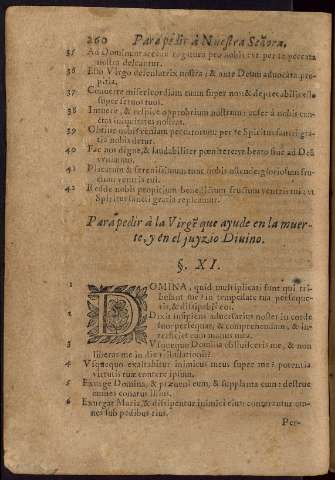 260 Para pedir à Nuestra Señora,
35 Ad Dominum
nostra deleantur.
36 Esto Virgo defensatrix nostra: & ante Deum advocata pro-
pitia.
37 Converte misericordiam tuam super nos: &
super servos tuos.
38 Intuere, & respice opprobrium nostrum:
nostra.
39 Obtine nobis veniam peccatorum: per te Spiritus sancti gra-
tia nobis detur.
40 Fac nos digne, & laudabiliter pœnitere: vt beato fine ad Deũ
veniamus.
41 Placatum & serenissimum tunc nobis ostende: gloriosum fru-
ctum ventris tui.
42 Redde nobis propitium benedictum fructum ventris tui: et
Spiritus sancti gratia repleamur.
Para pedir à la Virgẽ que ayude en la muer-
te, y en el juyzio Divino.
§. XI.
1 DOMINA, quid multiplicati sunt qui tri-
bulant me: in tempestate tua perseque-
ris, & dissipabis eos.
2 Dixit insipiens adversarius noster in corde
suo: persequar, & comprehendam, & in-
terficiet eum manus mea.
3 Vsquequo Domina oblivisceris me, & non
liberas me in die tribulationis?
4 Vsquequo exaltabitur inimicus meus super me: potentia
virtutis tuæ contere ipsum.
5 Exurge Domina, & præveni eum, & supplanta eum: destrue
omnes conatus illius.
6 Exurgat Maria, & dissipentur inimici eius: conterantur om-
nes sub pedibus eius.
Per-